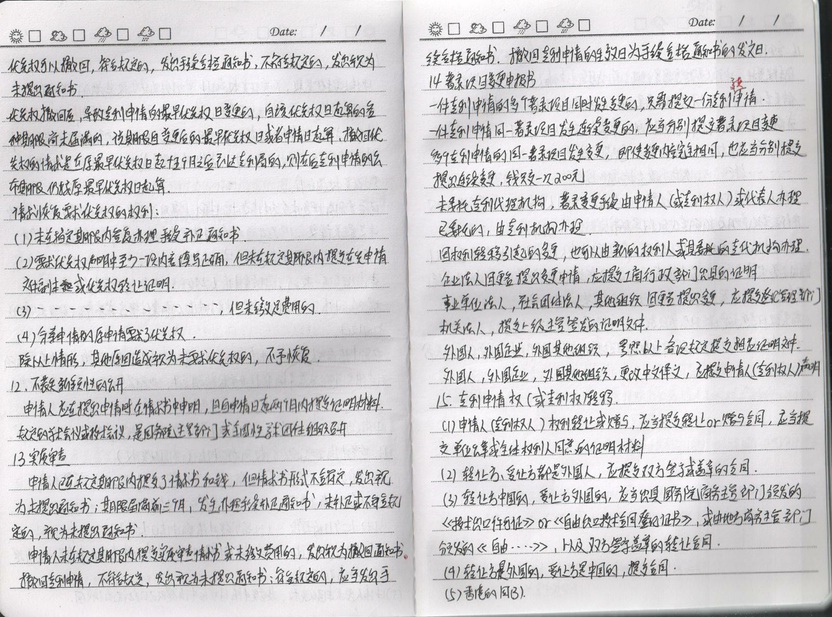 Date: / /
优先权可以撤回，符合规定的，发出手续合格通知书，不符合规定的，发出视为
未提出通知书.
优先权撤回后，导致专利申请的最早优先权日变更的，自该优先权日起算的各
种期限尚未届满的，该期限自变更后的最早优先权日或者申请日起算，撤回优
先权的请求是在原最早优先权日起15个月之后到达专利局的，则在后专利申请的公
布期限仍按原最早优先权日起算.
请求恢复要求优先权的权利：
(1) 未在指定期限内答复办理手续补正通知书.
(2) 要求优先权声明中至少一项内容填写正确，但未在规定期限内提交在先申请
文件副本或优先权转让证明.
(3) 〃，但未缴足费用的.
(4) 分案申请的原申请要求了优先权.
除以上情形，其他原因造成视为未要求优先权的，不予恢复.
12. 不丧失新颖性的公开
申请人应在提出申请时在请求书中申明，且自申请日起两个月内提交证明材料.
规定的学术会议或技术会议，是国务院主管部门或全国性学术团体组织召开
13 实质审查
申请人已在规定期限内提交了请求书和缴费，但请求书形式不符合规定，发出视
为未提出通知书；期限届满前三个月，发生办理手续补正通知书，未补正或不符合规
定的，视为未提出通知书.
申请人未在规定期限内提交实质审查请求书或未缴交费用的，发出视为撤回通知书.
撤回专利申请，不符合规定，发出视为未提出通知书；符合规定的，应当发出手
Date: / /
续合格通知书. 撤回专利申请的生效日为手续合格通知书的发文日.
14. 著录项目变更申报书
一件专利申请的多个著录项目同时发生变更的，只需提交一份专利申请.
一件专利申请同一著录项目发生连续变更的，应当分别提交著录项目变更
多个专利申请的同一著录项目发生变更，即使变更内容完全相同，也应当分别提交
提出连续变更，钱只交一次200元
未委托专利代理机构，著录变更手续由申请人（或专利权人）或代表人办理
已委托的，由专利机构办理.
因权利转移引起的变更，也可以由新的权利人或其委托的专代机构办理.
企业法人因更名提出变更申请，应提交工商行政部门出具的证明
事业单位法人，社会团体法人，其他组织因更名提出变更，应提交登记管理部门
机关法人，提交上级主管签发的证明文件.
外国人，外国企业，外国其他组织，参照以上各项规定提交相应证明文件.
外国人，外国企业，外国其他组织，更改中文译文，应提交申请人（专利权人）声明
15. 专利申请权（或专利权）转移.
(1) 申请人（专利权人）权利转让或赠与，应当提交转让or赠与合同，应当提
交单位公章或全体权利人同意的证明材料
(2) 转让方、受让方都是外国人，应提交双方签字或盖章的合同.
(3) 转让方中国的，受让方外国的，应当出具国务院商务主管部门颁发的
《技术出口许可证》or《自由出口技术合同登记证书》，或由地方商务主管部门
颁发的《自由····》，以及双方签字盖章的转让合同.
(4) 转让方是外国的，受让方是中国的，提交合同.
(5) 香港的同(3).